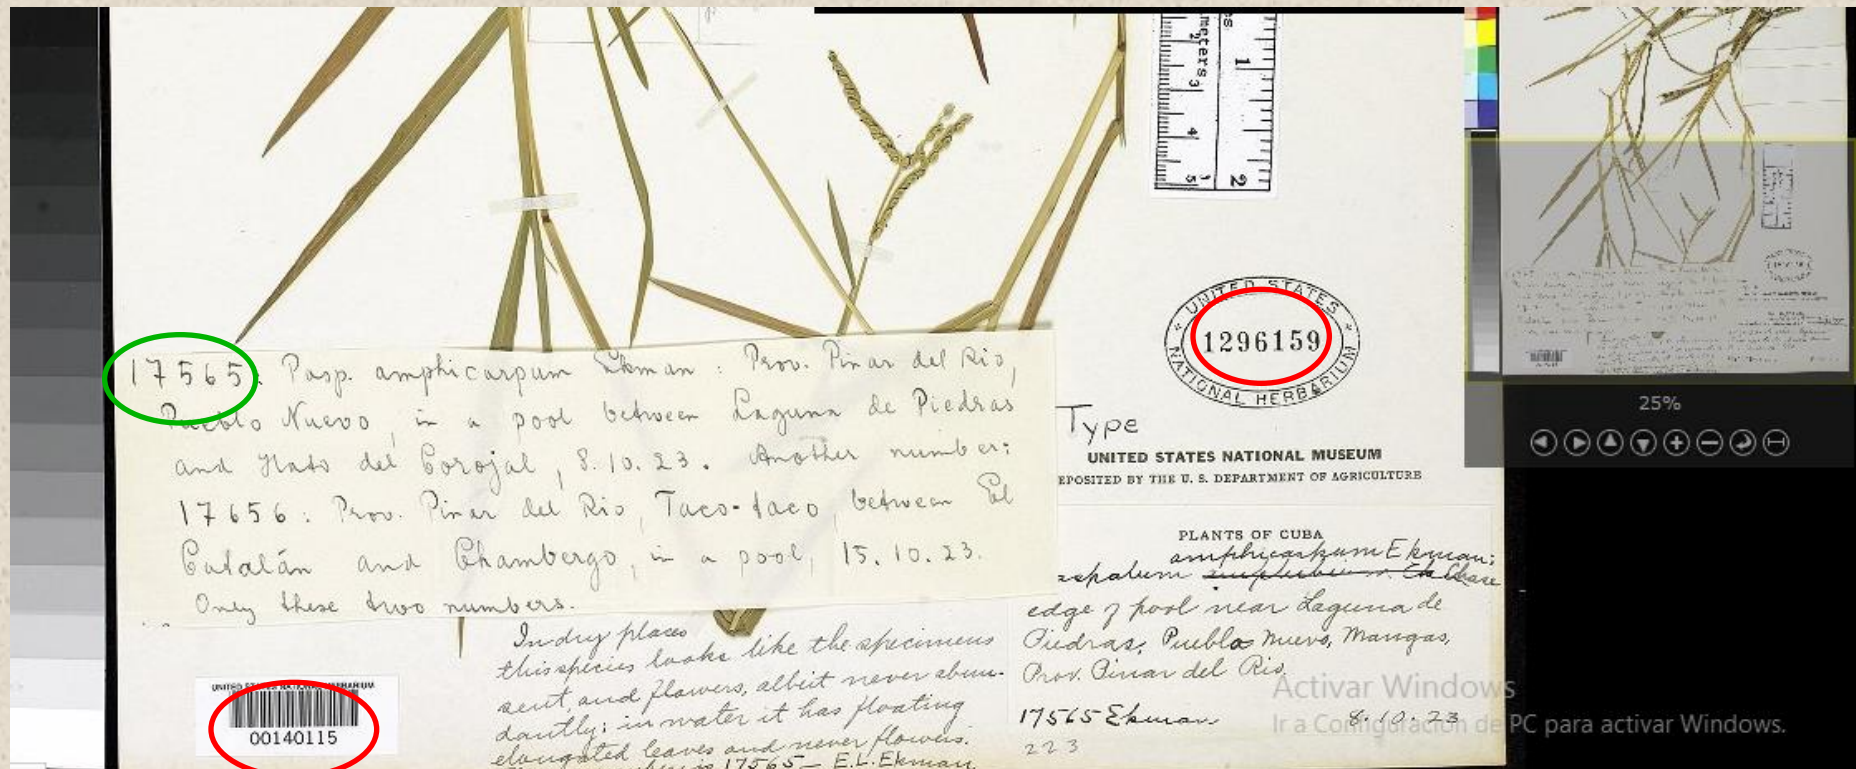 meters
1
2
3
4
5
1
2
UNITED STATES
1296159
NATIONAL HERBARIUM
17565: Pasp. amphicarpum Ekman: Prov. Pinar del Rio,
Pueblo Nuevo, in a pool between Laguna de Piedras
and Hato del Corojal, 8.10.23. Another number:
17656: Prov. Pinar del Rio, Taco-taco, between El
Catalán and Chambergo, in a pool, 15.10.23.
Only these two numbers.
Type
UNITED STATES NATIONAL MUSEUM
EPOSITED BY THE U. S. DEPARTMENT OF AGRICULTURE
PLANTS OF CUBA
amphicarpum Ekman:
aspalum Chase
edge of pool near Laguna de
Piedras, Pueblo Nuevo, Mangas,
Prov. Pinar del Rio
17565 Ekman 8.10.23
223
In dry places
this species looks like the specimens
sent, and flowers, albeit never abun-
dantly; in water it has floating
elongated leaves and never flowers.
17565 — E.L. Ekman
UNITED STATES NATIONAL HERBARIUM
00140115
25%
Activar Windows
Ir a Configuración de PC para activar Windows.